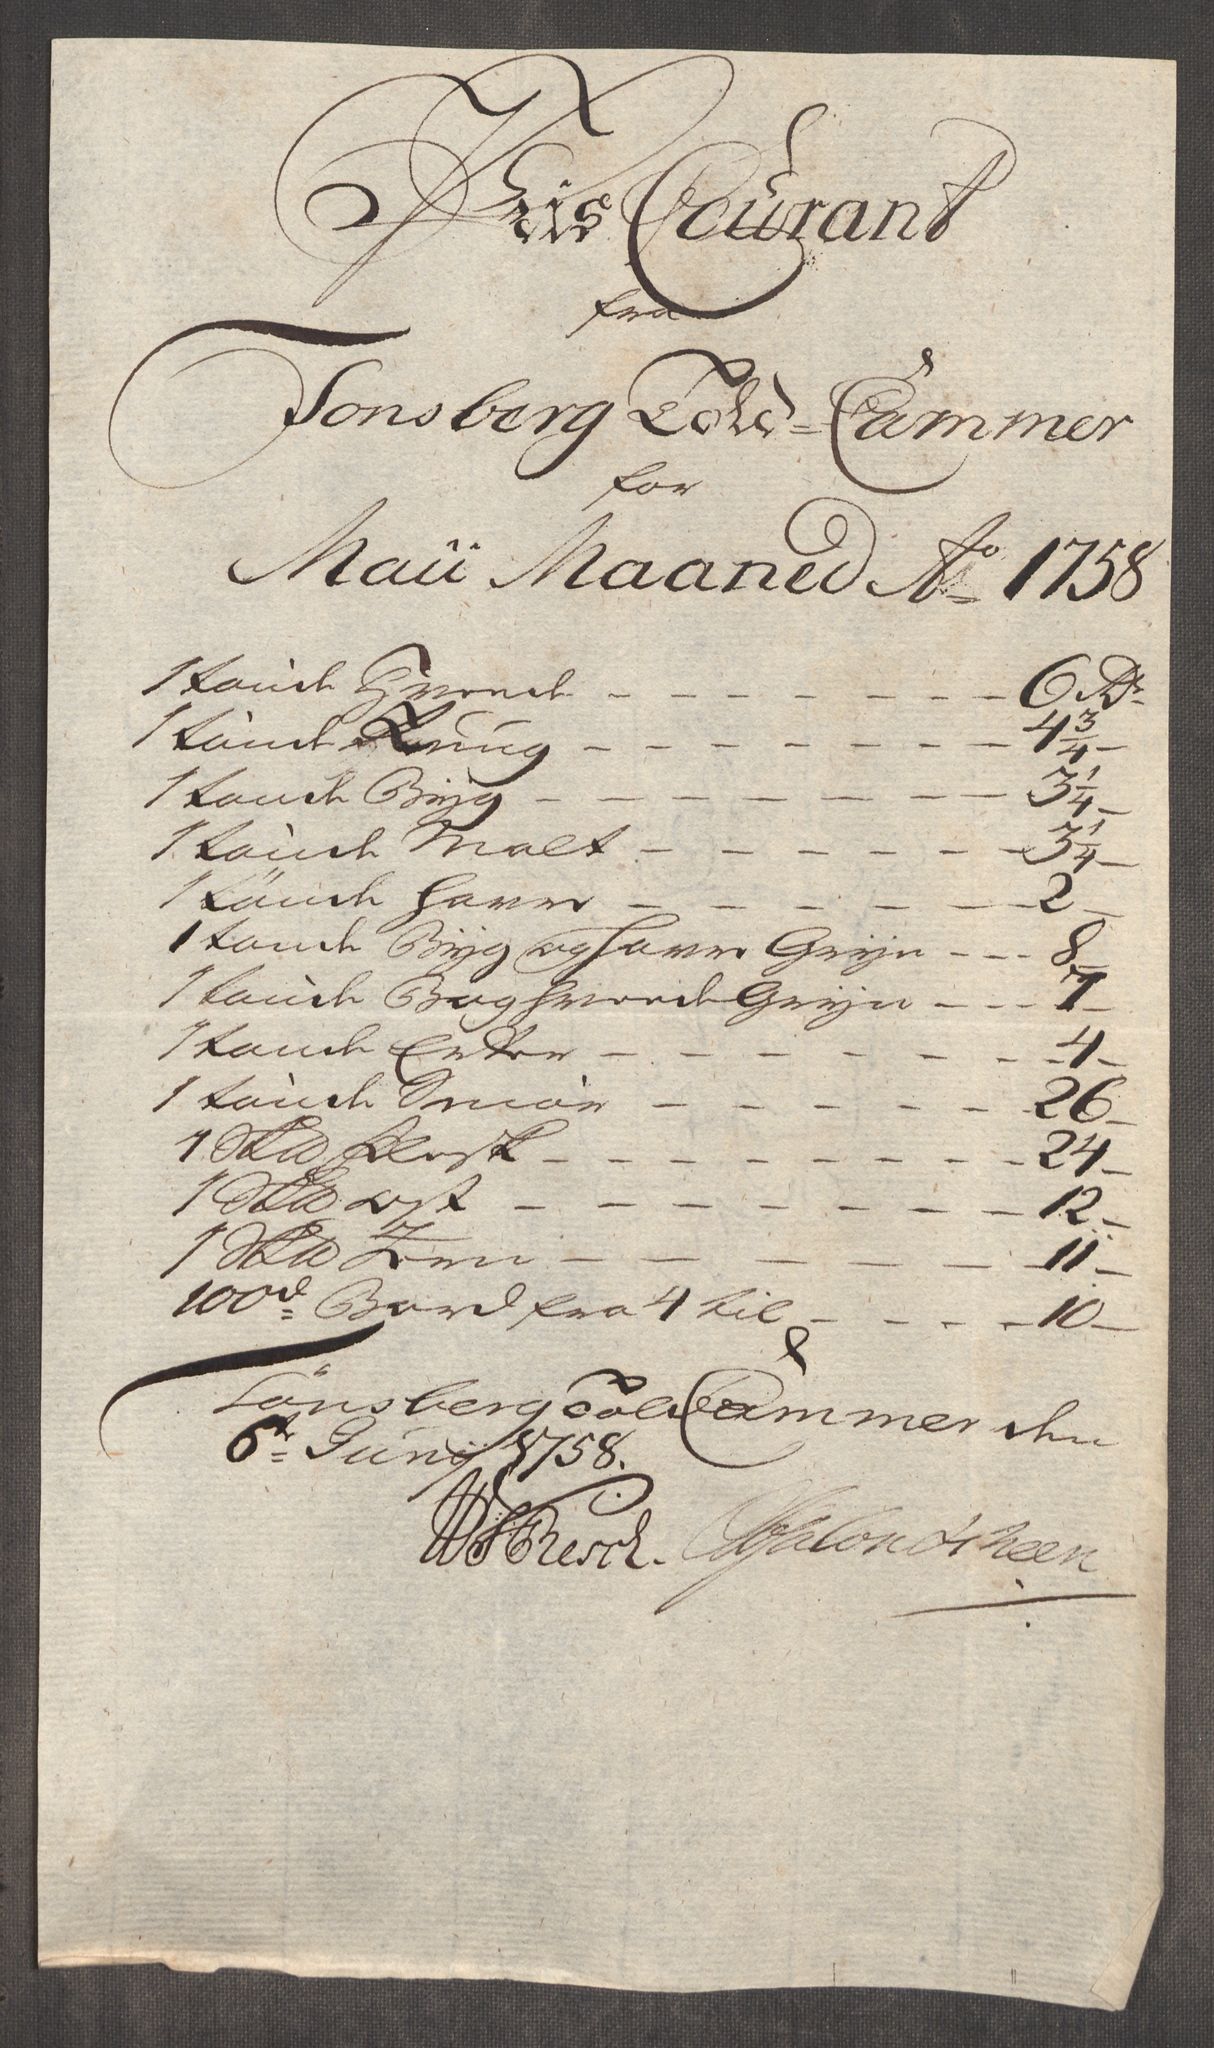 Preis Courant
fra
Tonsberg Told-Cammer
for
Maii Maaned Ao 1758
1 tønde Hvede - - - - - - - - 6 Rdr
1 tønde Rug - - - - - - - - 4 3/4 -
1 tønde Byg - - - - - - - - 3 1/4 -
1 tønde Malt - - - - - - - 3 1/4 -
1 tønde Havre - - - - - - - 2 -
1 tønde Byg og Havre Gryn - - - 8 -
1 tønde Boghvede Gryn - - - 7 -
1 tønde Erter - - - - - - - - 4 -
1 tønde Smør - - - - - - - 26 -
1 Skd Flesk - - - - - - - - 24 -
1 Skd Ost - - - - - - - - 12 -
1 Skd - - - - - - - 11 -
100d Bord fra 4 til - - - - - 10 -
Tönsberg Told Cammer den
6te Junij 1758.
Resch.